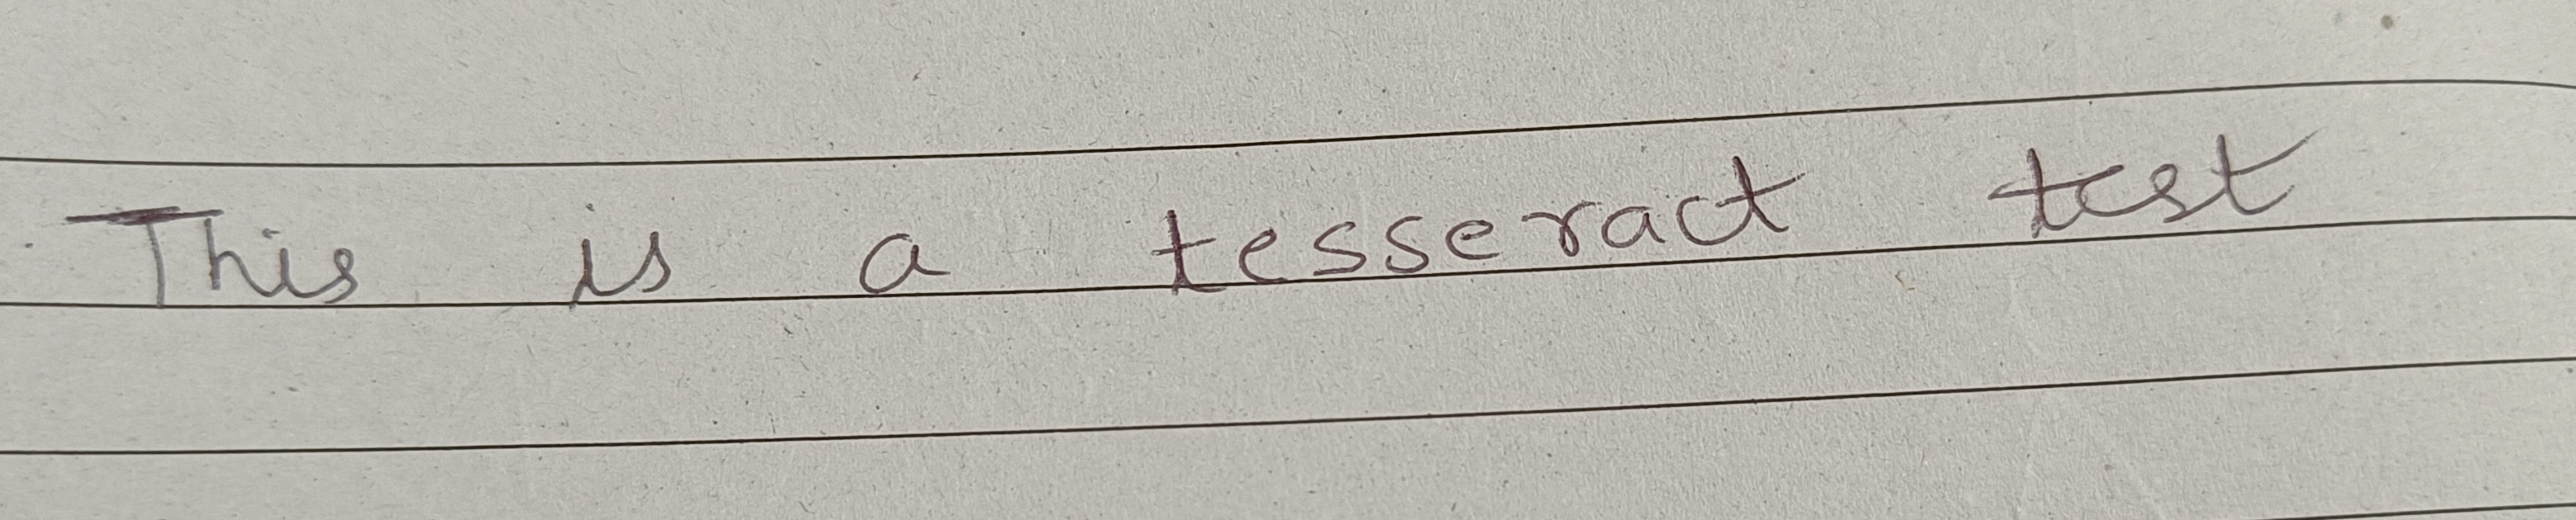 This is a tesseract test